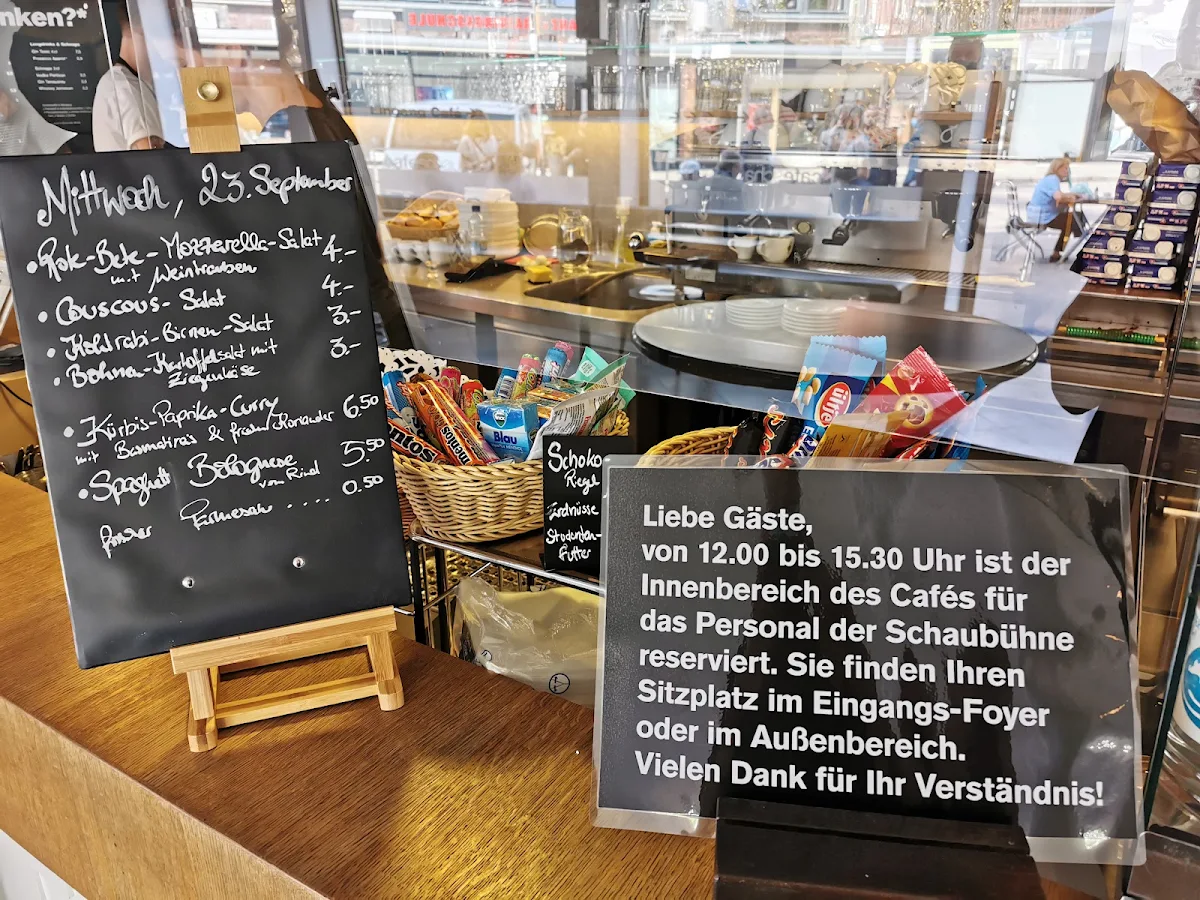 nken?*
Mittwoch, 23. September
• Rote-Bete-Mozzarella-Salat 4.-
mit Weintrauben
• Couscous-Salat 4.-
• Kohlrabi-Birnen-Salat 3.-
• Bohnen-Kartoffelsalat mit 3.-
Ziegenkäse
• Kürbis-Paprika-Curry 6.50
mit Basmatireis & frischem Koriander
• Spaghetti Bolognese 5.50
vom Rind
frischer Parmesan .... 0.50
mentos
Blau
ültje
Schoko
Riegel
Erdnüsse
Studenten-
futter
Liebe Gäste,
von 12.00 bis 15.30 Uhr ist der
Innenbereich des Cafés für
das Personal der Schaubühne
reserviert. Sie finden Ihren
Sitzplatz im Eingangs-Foyer
oder im Außenbereich.
Vielen Dank für Ihr Verständnis!